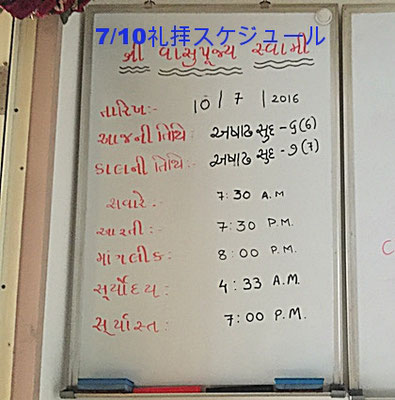 7/10礼拝スケジュール
શ્રી વાસુપૂજ્ય સ્વામી
તારિખ:- 10/7/2016
આજની તિથિ:- અષાઢ સુદ - ૬(6)
કાલની તિથિ:- અષાઢ સુદ - ૭(7)
સવારે:- 7:30 A.M
આરતી:- 7:30 P.M.
માંગલીક:- 8:00 P.M.
સૂર્યોદય:- 4:33 A.M.
સૂર્યાસ્ત:- 7:00 P.M.
C